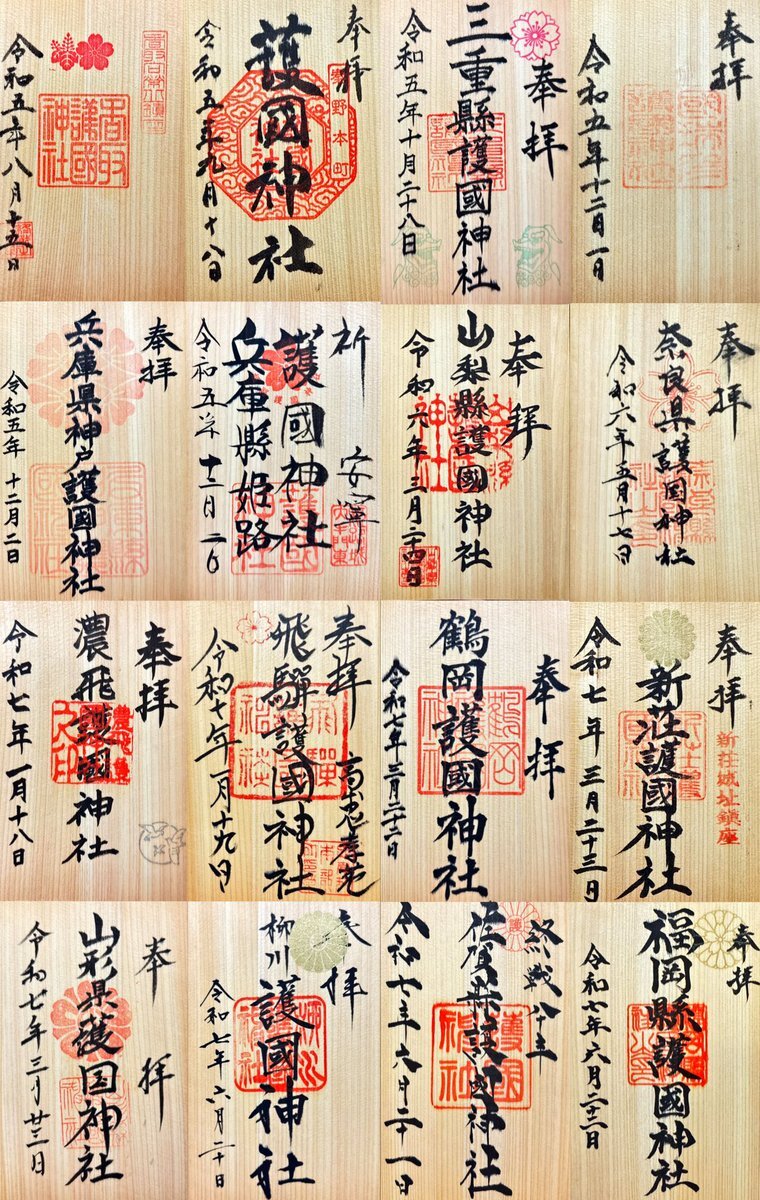 香取護國神社
令和五年八月十五日
奉拝
護國神社
令和五年九月十八日
奉拝
三重縣護國神社
令和五年十月二十八日
奉拝
令和五年十二月一日
奉拝
兵庫県神戸護国神社
令和五年十二月二日
祈 安寧
護國神社
兵庫縣姫路
令和五年十二月二日
奉拜
山梨縣護國神社
令和六年三月二十四日
奉拝
奈良県護国神社
令和六年五月十七日
奉拝
濃飛護國神社
令和七年一月十八日
奉拝
飛騨護國神社
令和七年一月十九日
奉拝
鶴岡護國神社
令和七年三月二十二日
奉拝
新荘城址鎮座
新荘護國神社
令和七年三月二十三日
奉拝
山形県護国神社
令和七年三月廿三日
奉拝
柳川護國神社
令和七年六月二十日
終戦八十年
佐賀縣護國神社
令和七年六月二十一日
奉拝
福岡縣護國神社
令和七年六月二十二日